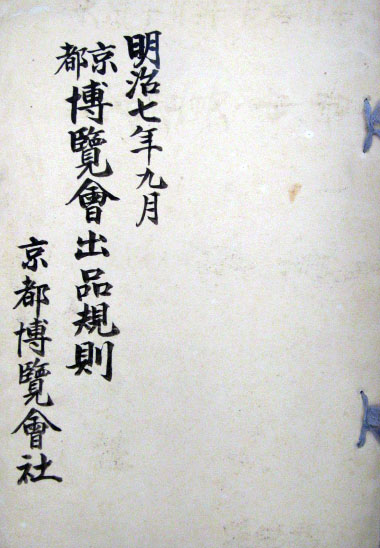 明治七年九月
京都博覽會出品規則
京都博覽會社